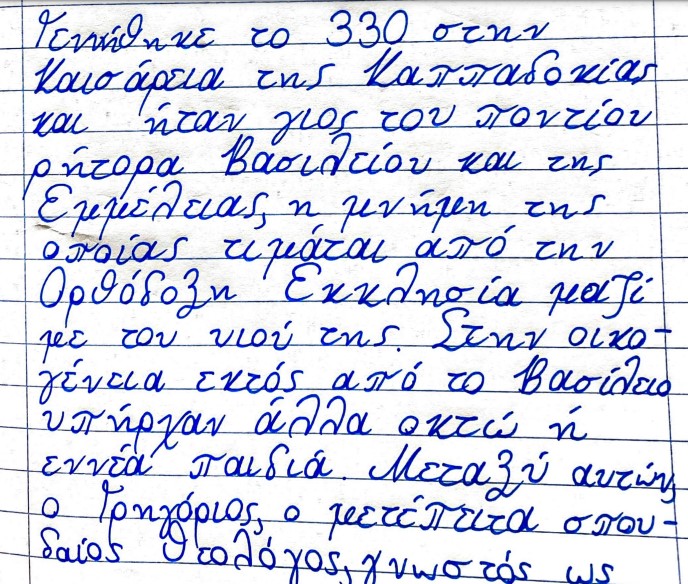 Γεννήθηκε το 330 στην
Καισάρεια της Καππαδοκίας
και ήταν γιος του ποντίου
ρήτορα Βασιλείου και της
Εμμέλειας, η μνήμη της
οποίας τιμάται από την
Ορθόδοξη Εκκλησία μαζί
με του υιού της. Στην οικο-
γένεια εκτός από το Βασίλειο
υπήρχαν άλλα οκτώ ή
εννέα παιδιά. Μεταξύ αυτών,
ο Γρηγόριος, ο μετέπειτα σπου-
δαίος θεολόγος, γνωστός ως